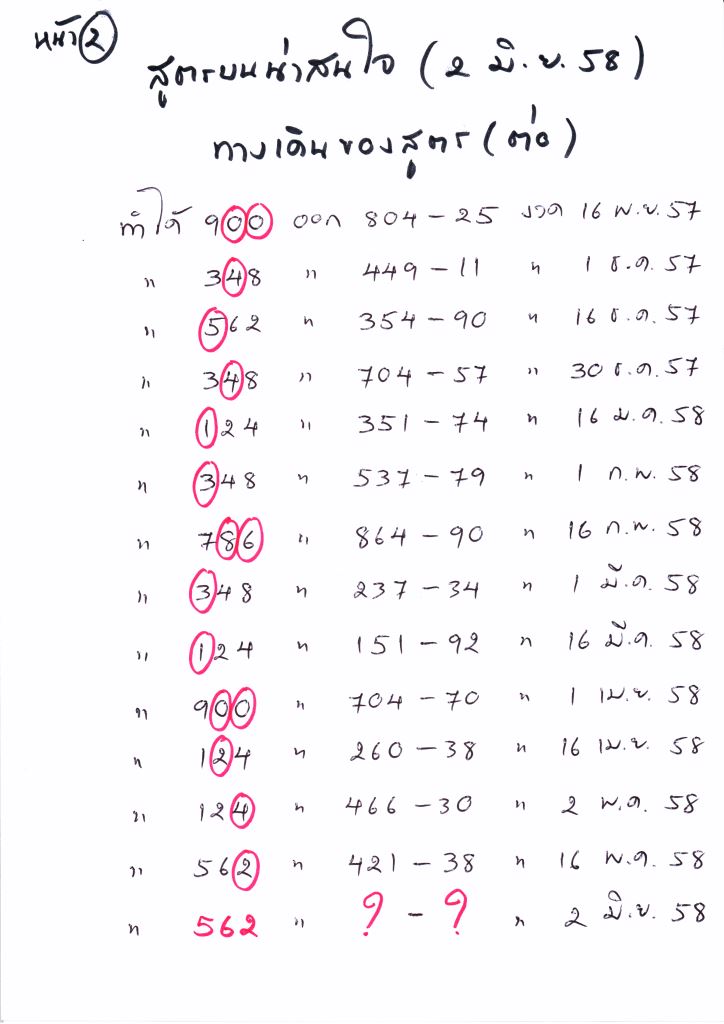 หน้า 2
สูตรบนน่าสนใจ (2 มิ.ย. 58)
ทางเดินของสูตร (ต่อ)
ทำได้ 900 ออก 804-25 งวด 16 พ.ย. 57
" 348 " 449-11 " 1 ธ.ค. 57
" 562 " 354-90 " 16 ธ.ค. 57
" 348 " 704-57 " 30 ธ.ค. 57
" 124 " 351-74 " 16 ม.ค. 58
" 348 " 537-79 " 1 ก.พ. 58
" 786 " 864-90 " 16 ก.พ. 58
" 348 " 237-34 " 1 มี.ค. 58
" 124 " 151-92 " 16 มี.ค. 58
" 900 " 704-70 " 1 เม.ย. 58
" 124 " 260-38 " 16 เม.ย. 58
" 124 " 466-30 " 2 พ.ค. 58
" 562 " 421-38 " 16 พ.ค. 58
" 562 " ?-? " 2 มิ.ย. 58